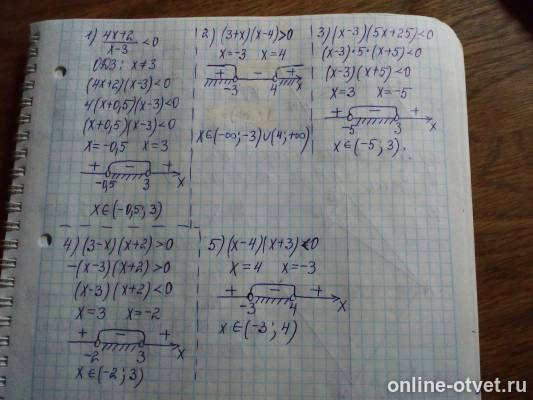 1) (4x+2)/(x-3) <0
ОДЗ: x≠3
(4x+2)(x-3)<0
4(x+0,5)(x-3)<0
(x+0,5)(x-3)<0
x=-0,5 x=3
+ - +
-0,5 3 x
x∈(-0,5; 3)
2) (3+x)(x-4)>0
x=-3 x=4
+ - +
-3 4 x
x∈(-∞;-3)∪(4;+∞)
3) (x-3)(5x+25)<0
(x-3)·5·(x+5)<0
(x-3)(x+5)<0
x=3 x=-5
+ - +
-5 3 x
x∈(-5; 3).
4) (3-x)(x+2)>0
-(x-3)(x+2)>0
(x-3)(x+2)<0
x=3 x=-2
+ - +
-2 3 x
x∈(-2; 3)
5) (x-4)(x+3)<0
x=4 x=-3
+ - +
-3 4 x
x∈(-3; 4)
online-otvet.ru